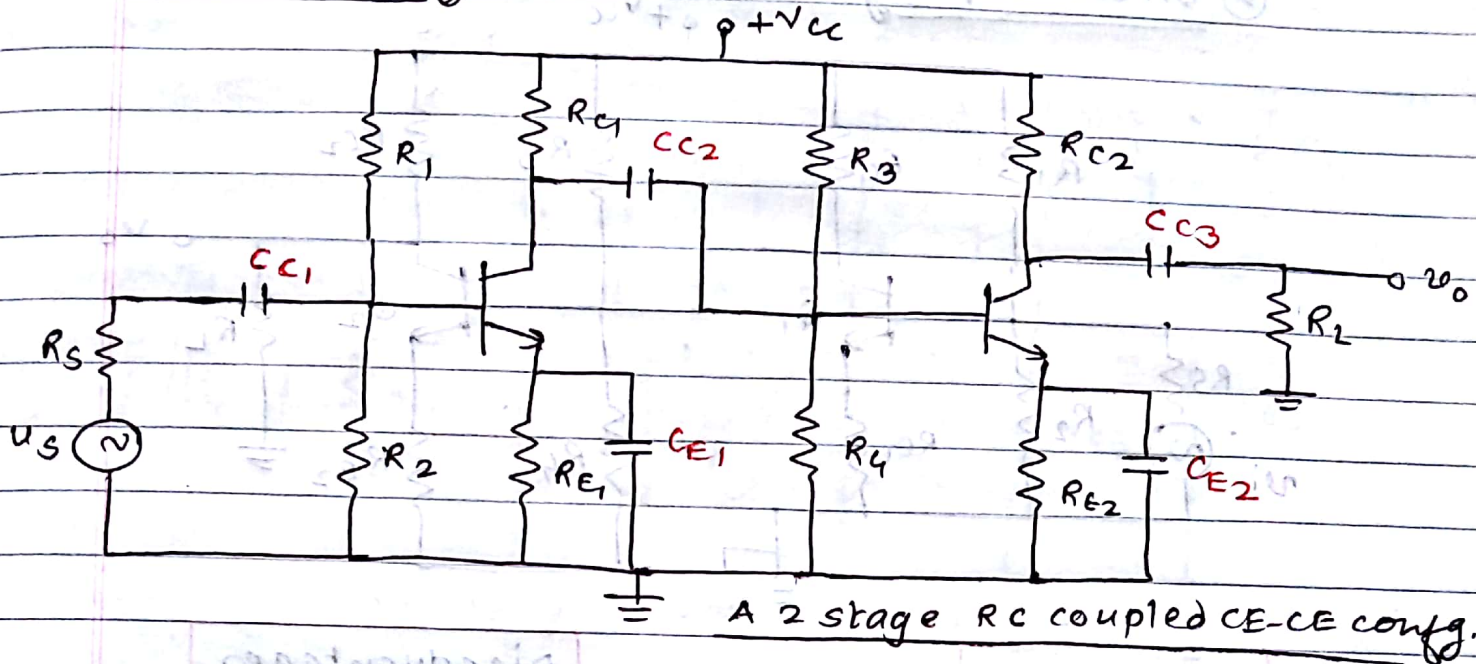 +Vcc
R1
RC1
CC2
R3
RC2
CC3
CC1
RS
us
R2
RE1
CE1
R4
RE2
CE2
RL
vo
A 2 stage RC coupled CE-CE confg.